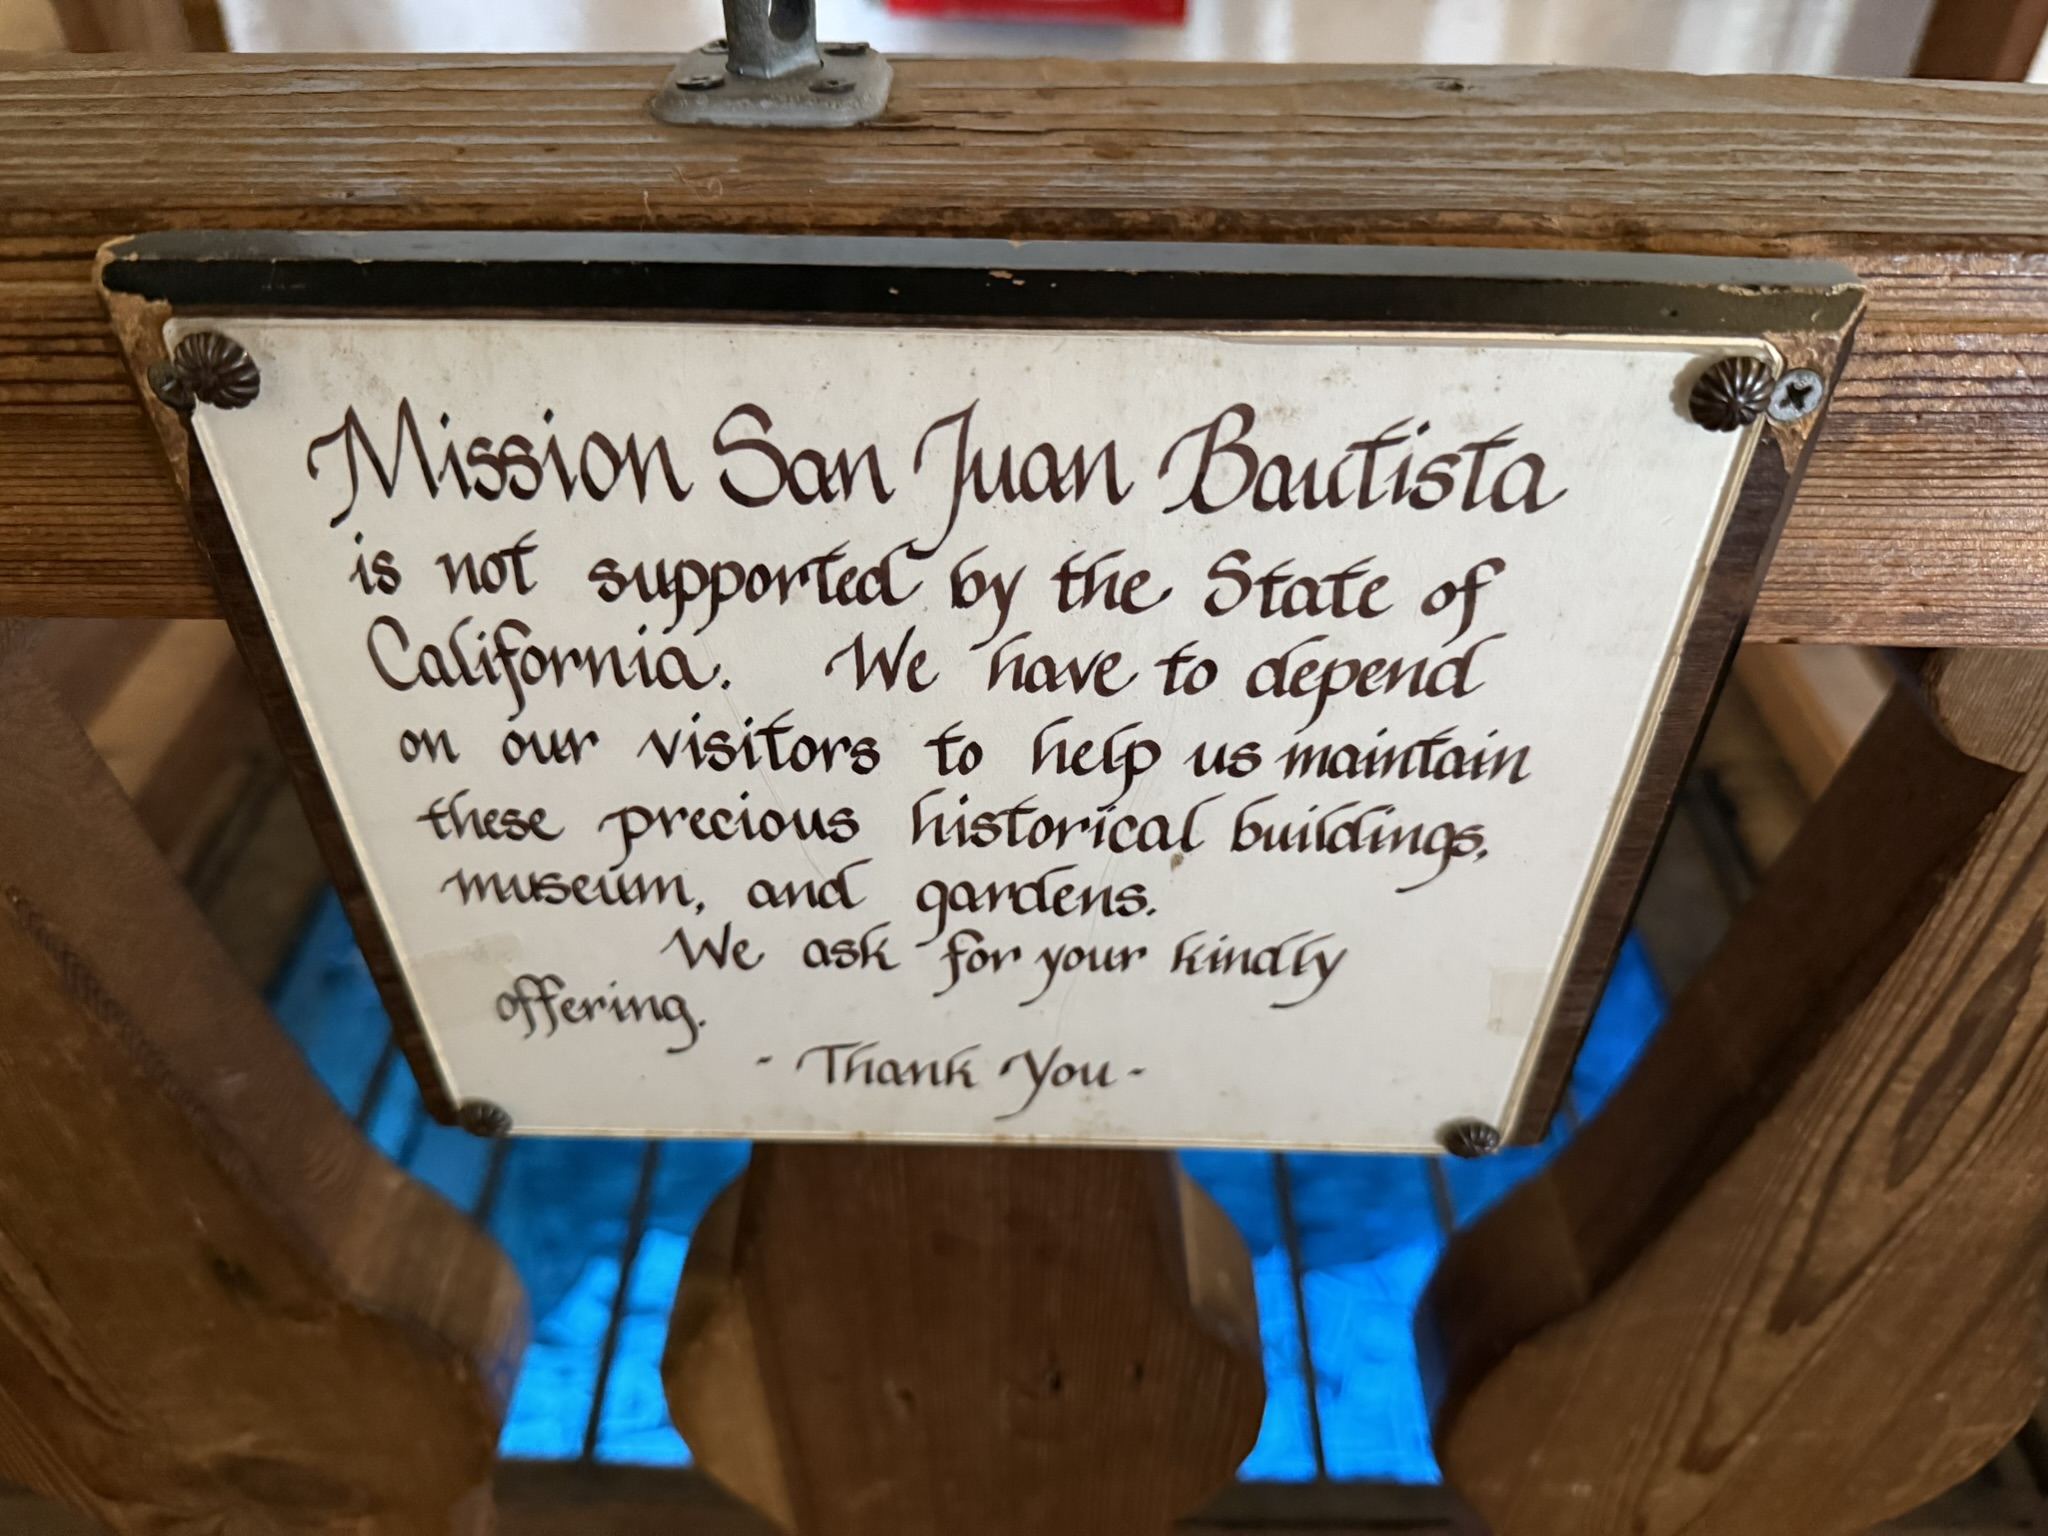 Mission San Juan Bautista
is not supported by the State of
California. We have to depend
on our visitors to help us maintain
these precious historical buildings,
museum, and gardens.
We ask for your kindly
offering.
- Thank You -